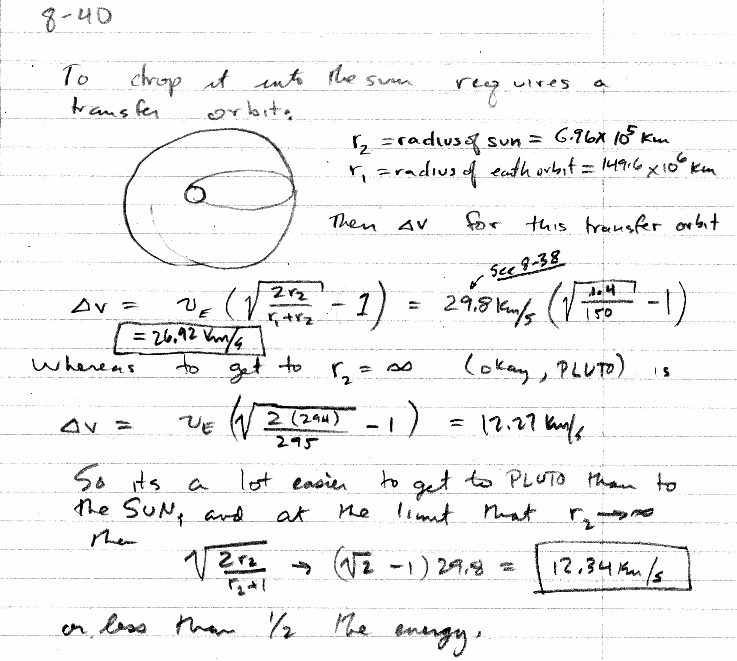 8-40
To drop it into the sun requires a
transfer orbit.
r₂ = radius of sun = 6.96 x 10⁵ Km
r₁ = radius of eath orbit = 149.6 x 10⁶ Km
Then ΔV for this transfer orbit
See 8-38
ΔV = v_E (√(2r₂/(r₁+r₂)) - 1) = 29.8 Km/s (√(1.4/150) - 1)
= 26.92 Km/s
Whereas to get to r₂ = ∞ (okay, PLUTO) is
ΔV = v_E (√(2(294)/295) - 1) = 12.27 Km/s
So its a lot easier to get to PLUTO than to
the SUN, and at the limit that r₂ → ∞
then
√(2r₂/(r₂+1)) → (√2 - 1) 29.8 = 12.34 Km/s
or less than 1/2 the energy.